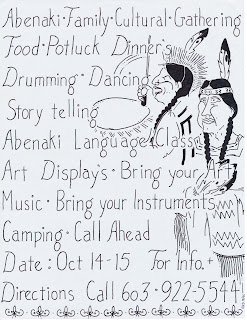 Abenaki • Family • Cultural • Gathering
Food • Potluck Dinner's
Drumming • Dancing
Story telling
Abenaki Language Classe
Art Display's • Bring your Art
Music • Bring your Instruments
Camping • Call Ahead
Date : Oct 14-15 For Info. +
Directions Call 603-922-5544